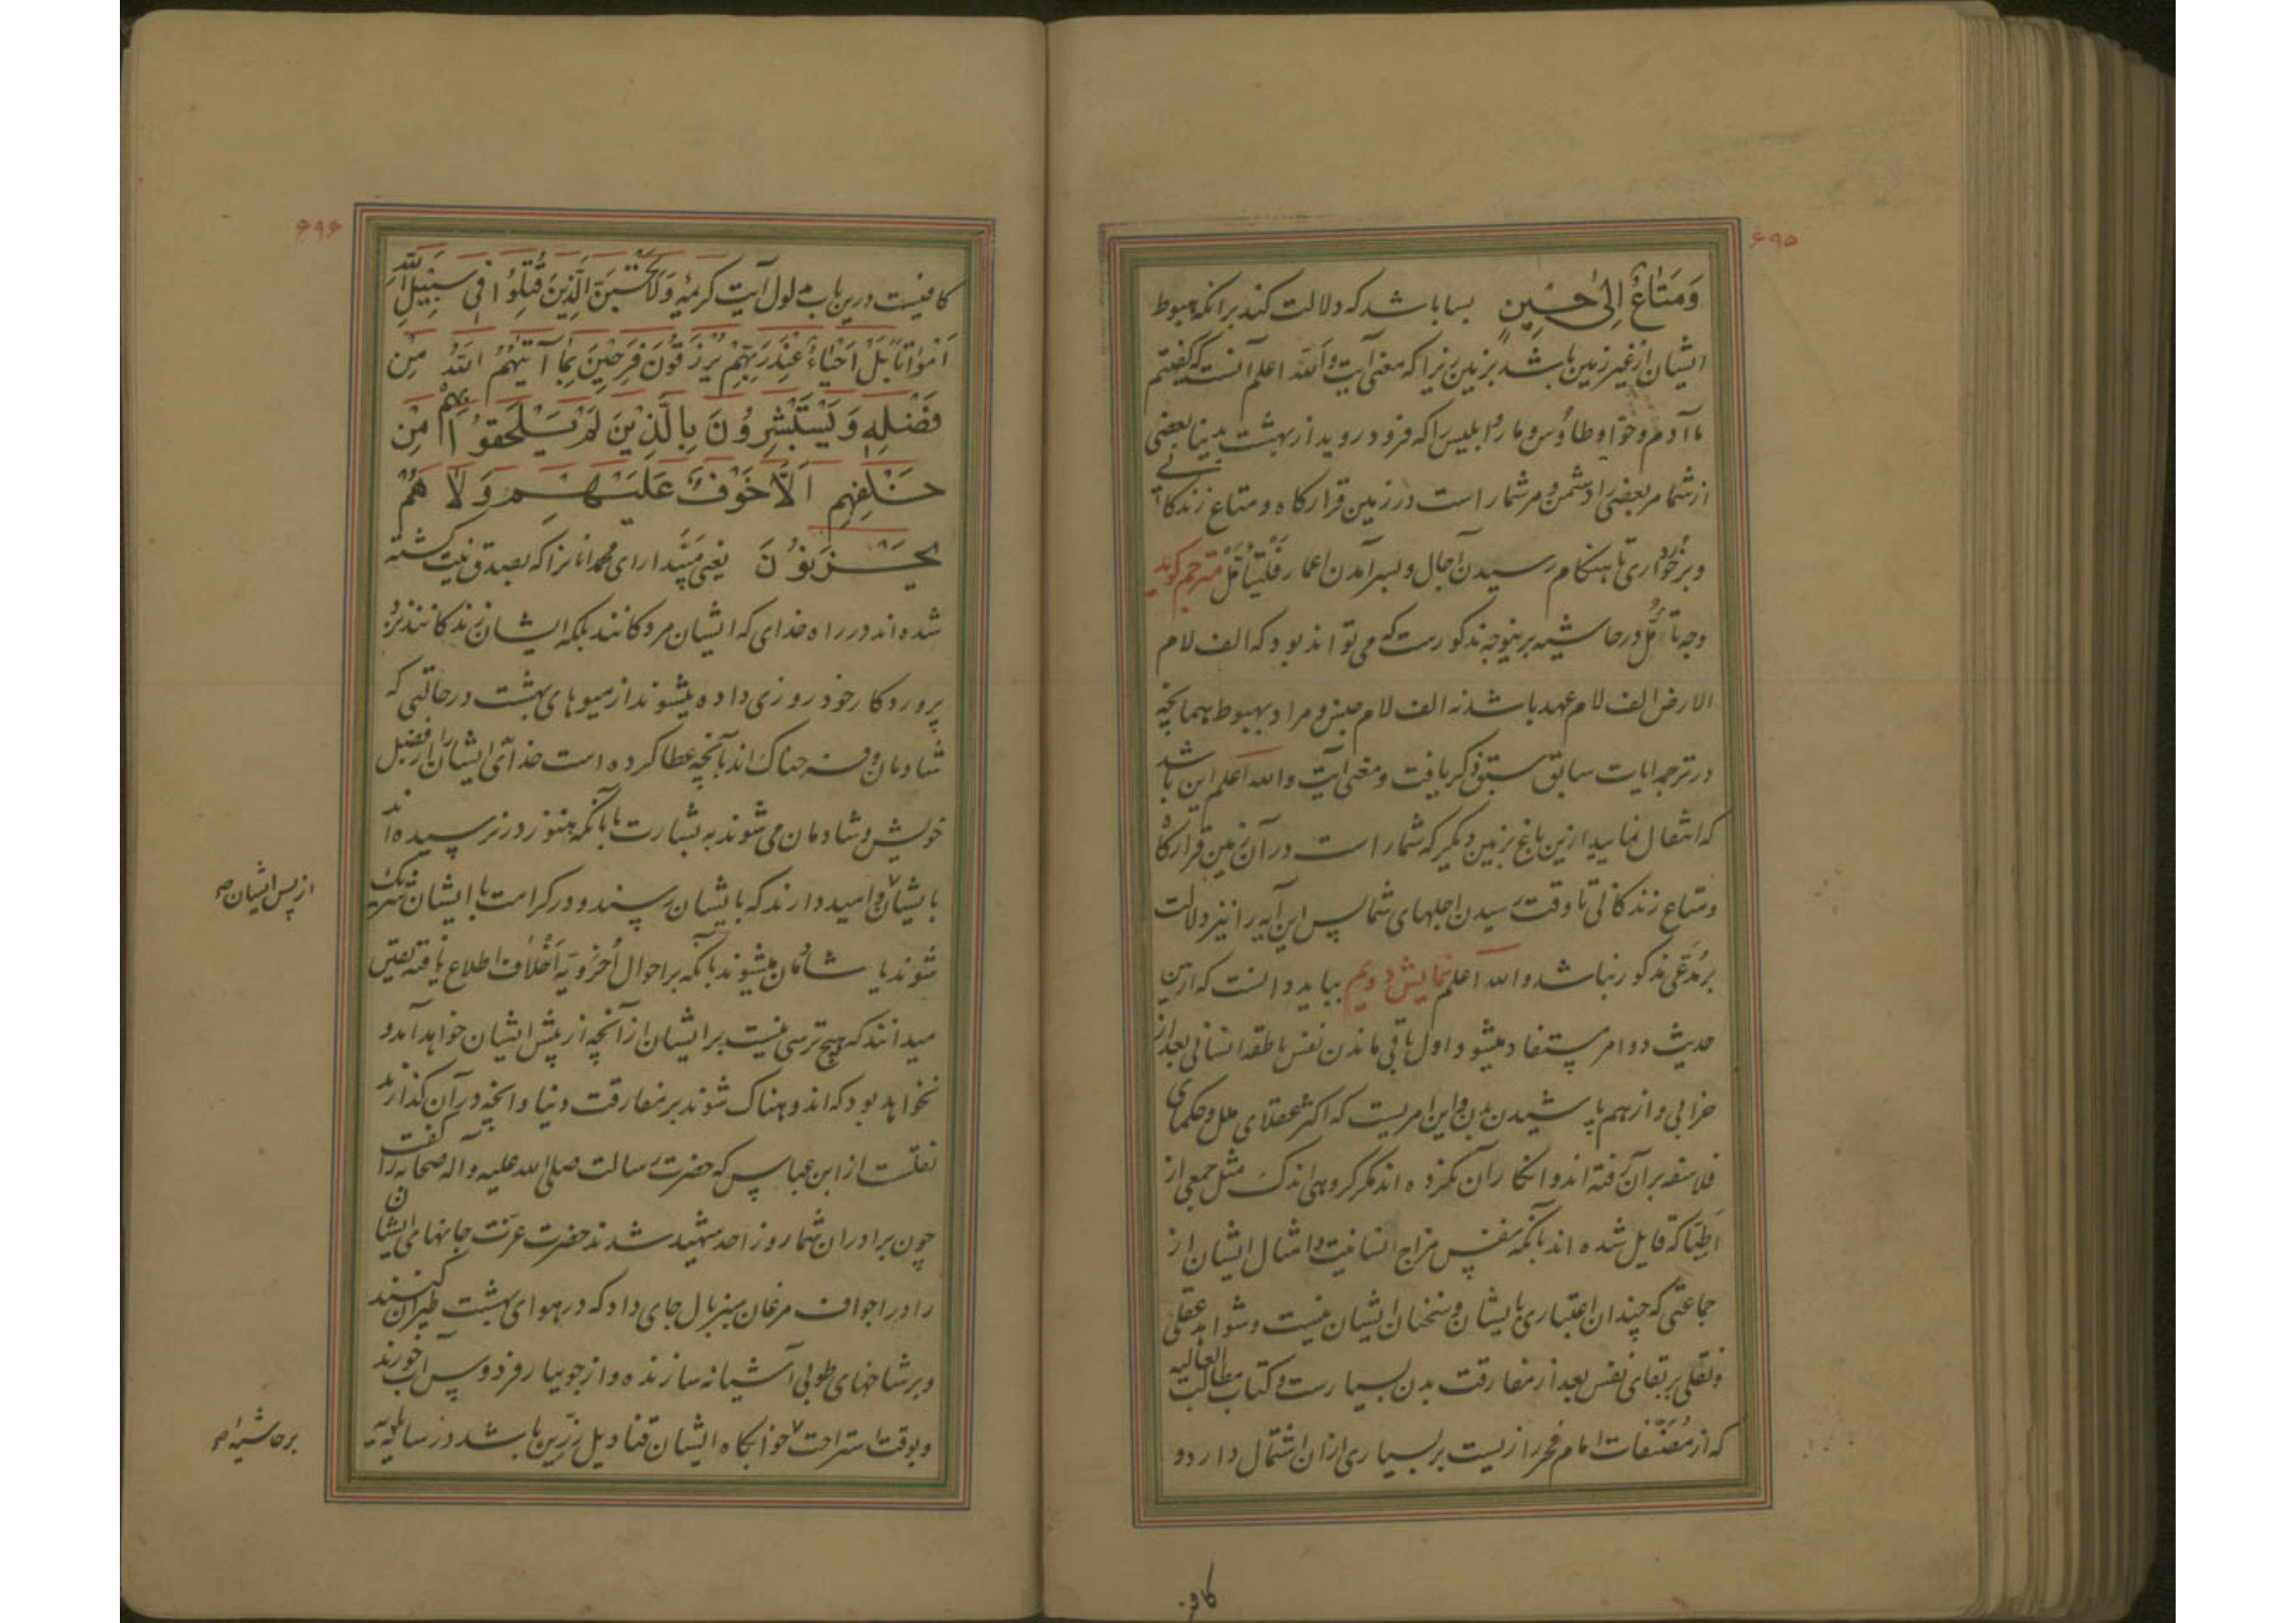 ۶۹۵
وَمَتَاعٌ إِلىٰ حِینٍ بسا باشد که دلالت کند برانکه هبوط
ایشان از غیر زمین باشد بزمین زیرا که معنی آیت والله اعلم آنست که گفتیم
ما آدم و حوّا و طاؤس و مار و ابلیس را که فرود روید از بهشت بدنیا بعضی
از شما مر بعضی را دشمن و مر شمار است در زمین قرارکاه و متاع زندکانے
و برخورداری تا هنکام رسیدن آجال و بسر آمدن اعمار فَلْیَتَأَمَّل مترجم کوید
وجه تأمُّل در حاشیه برینوجه مذکورست که می تواند بود که الف لام
الارض الف لام عهد باشد نه الف لام جنس و مراد بهبوط همانچه
در ترجمه ایات سابق سبق ذکر یافت و معنی آیت والله اعلم این باشد
که انتقال نمایید ازین باغ بزمین دیکر که شمار است در آن زمین قرارکاه
و متاع زندکانی تا وقت رسیدن اجلهای شما پس این آیه را نیز دلالت
بر مُدّعی مذکور نباشد والله اعلم نمایش دویم بباید دانست که ازین
حدیث دو امر مستفاد میشود اول باقی ماندن نفس ناطقه انسانی بعد از
خرابی و از هم پاشیدن بدن و این امریست که اکثر عقلای ملل و حکمای
فلاسفه بر آن رفته اند و انکار آن نکرده اند مکر کروهی اندک مثل جمعی از
اَطِبّا که قایل شده اند بآنکه نفس مزاج انسانیت و امثال ایشان از
جماعتی که چندان اعتباری بایشان و سخنان ایشان نیست و شواهد عقلی
و نقلی بر بقای نفس بعد از مفارقت بدن بسیارست و کتاب مطالب العالیه
که از مُصَنّفات امام فخر رازیست بر بسیاری ازان اشتمال دارد و
کافی
۶۹۶
کافیست درین باب مدلول آیت کریمه وَلَا تَحْسَبَنَّ الَّذِینَ قُتِلُوا فِی سَبِیْلِ اللهِ
اَمْوَاتاً بَلْ اَحْیَاءٌ عِنْدَ رَبِّهِمْ یُرْزَقُوْنَ فَرِحِیْنَ بِمَا آتٰیهُمُ اللهُ مِن
فَضْلِهٖ وَیَسْتَبْشِرُوْنَ بِالَّذِیْنَ لَمْ یَلْحَقُوْا بِهِمْ مِنْ
خَلْفِهِم اَلَّا خَوْفٌ عَلَیْهِم وَلَا هُمْ
یَحْزَنُوْنَ یعنی مپندار ای محمد انانرا که بصدق نیت کشته
شده اند در راه خدای که ایشان مردکانند بلکه ایشان زندکانند نزد
پروردکار خود روزی داده میشوند از میوهای بهشت در حالتی که
شادمان و فرحناک اند بآنچه عطا کرده است خدای ایشان را از فضل
خویش و شادمان می شوند به بشارت یا بآنکه هنوز در نرسیده اند
بایشان و امید دارند که بایشان رسند و در کرامت با ایشان شریک
شوند یا شادمان میشوند بآنکه بر احوال اُخرویّه اَخْلاف اطلاع یافته یقین
میدانند که هیچ ترسی نیست بر ایشان از آنچه از پیش ایشان خواهد آمد و
نخواهد بود که اندوهناک شوند بر مفارقت دنیا و انچه در آن کذارند
نقلست از ابن عباس که حضرت رسالت صلی الله علیه و آله صحابه را گفت
چون برادران شما روز احد شهید شدند حضرت عزت جانهای ایشان
را در اجواف مرغان سبز بال جای داد که در هوای بهشت طیران کنند
و بر شاخهای طوبی آشیانه سازند و از جویبار فردوس آب خورند
و بوقت استراحت خوابکاه ایشان قنادیل زرّین باشد در سایه
از پس ایشان صح